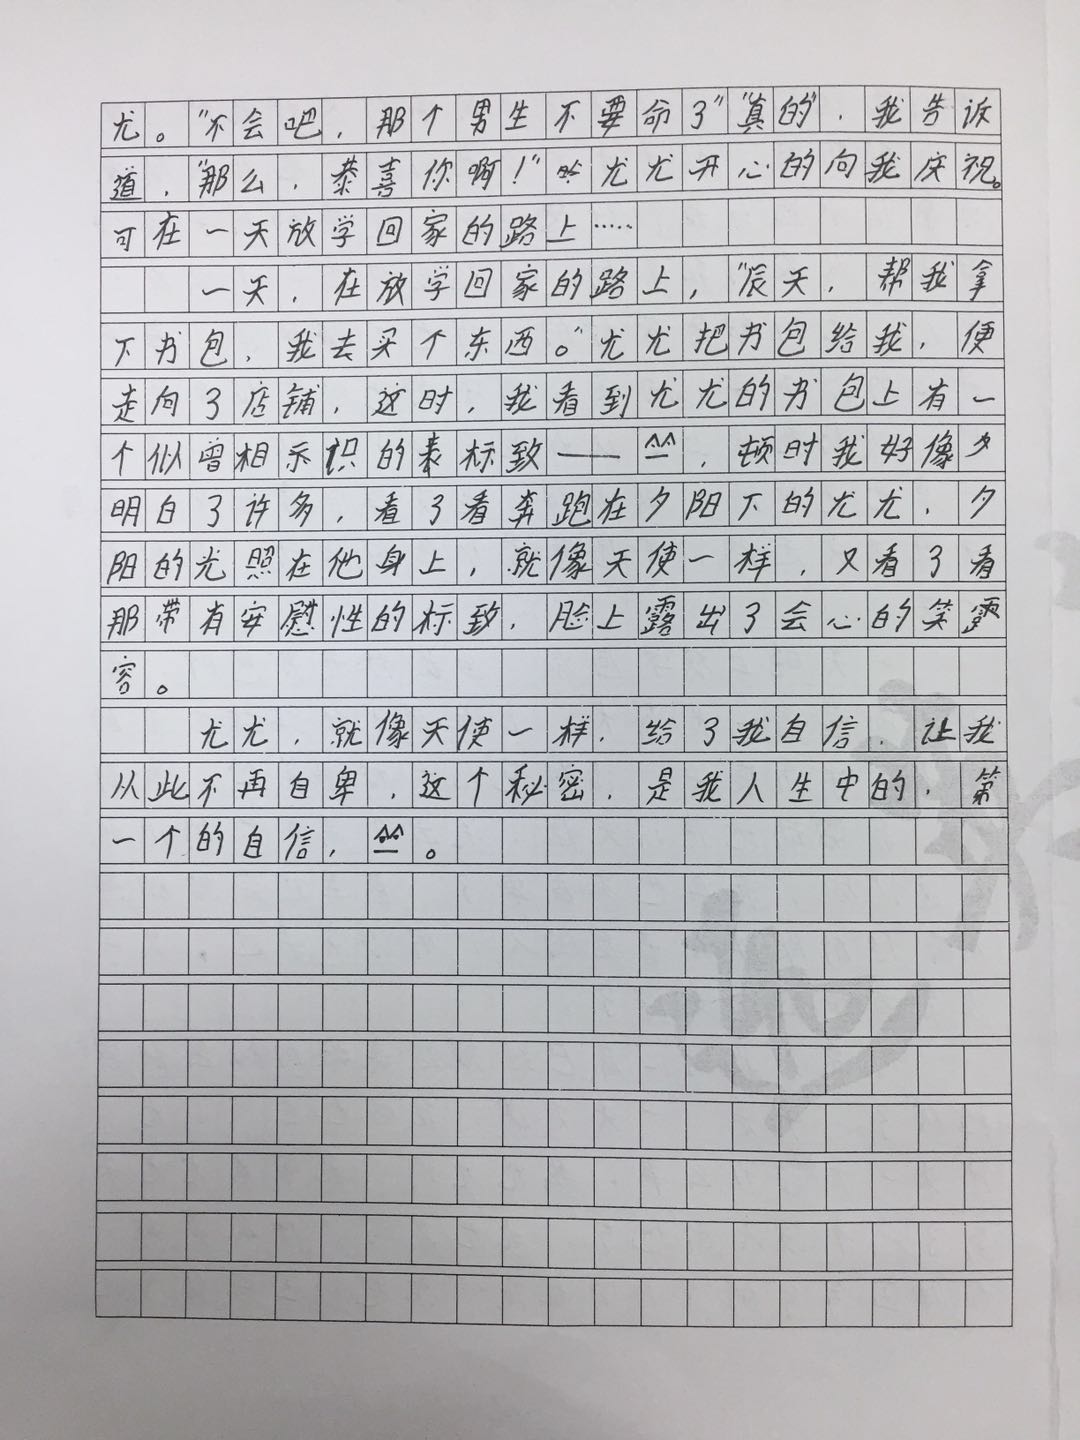 尤。“不会吧，那个男生不要命了”“真的”，我告诉
道，“那么，恭喜你啊！”尤尤开心的向我庆祝。
可在一天放学回家的路上……
一天，在放学回家的路上，“辰天，帮我拿
下书包，我去买个东西。”尤尤把书包给我，便
走向了店铺，这时，我看到尤尤的书包上有一
个似曾相示识的表标致——^^，顿时我好像夕
明白了许多，看了看奔跑在夕阳下的尤尤，夕
阳的光照在他身上，就像天使一样，又看了看
那带有安慰性的标致，脸上露出了会心的笑露
容。
尤尤，就像天使一样，给了我自信，让我
从此不再自卑，这个秘密，是我人生中的，第
一个的自信，^^。